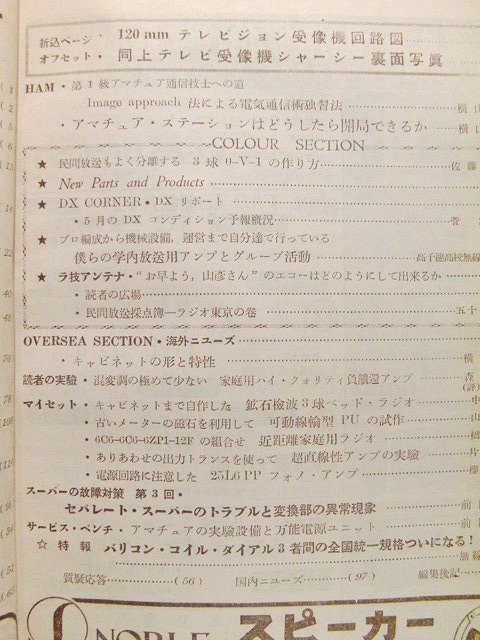 折込ページ・ 120mm テレビジョン受像機回路図
オフセット・ 同上テレビ受像機シャーシー裏面写真
HAM・第1級アマチュア通信技士への道
Image approach 法による電気通信術独習法 横
・アマチュア・ステーションはどうしたら開局できるか 横
COLOUR SECTION
★ 民間放送もよく分離する 3球0-V-1の作り方 佐藤
★ New Parts and Products
★ DX CORNER・DX リポート
・5月のDX コンディション予報概況 菅
★ プロ編成から機械設備,運営まで自分達で行っている
僕らの学内放送用アンプとグループ活動 高千穂高校無線
★ ラ技アンテナ・“お早よう,山彦さん”のエコーはどのようにして出来るか
・読者の広場
・民間放送採点簿―ラジオ東京の巻 五十
OVERSEA SECTION・海外ニューズ
・キャビネットの形と特性 横
読者の実験・混変調の極めて少ない 家庭用ハイ・クォリティ負饋還アンプ 森
マイセット・キャビネットまで自作した 鉱石検波3球ベッド・ラジオ 中
・古いメーターの磁石を利用して 可動線輪型 PUの試作 山
・6C6-6C6-6ZP1-12Fの組合せ 近距離家庭用ラジオ
・ありあわせの出力トランスを使って 超直線性アンプの実験 片
・電源回路に注意した 25L6PP フォノ・アンプ
スーパーの故障対策 第3回・
セパレート・スーパーのトラブルと変換部の異常現象 前
サービス・ベンチ・アマチュアの実験設備と万能電源ユニット 前
☆ 特報 バリコン・コイル・ダイアル3者間の全国統一規格ついになる!
無線
質疑応答 (56) 国内ニユーズ (97) 編集後記
NOBLE スピーカー